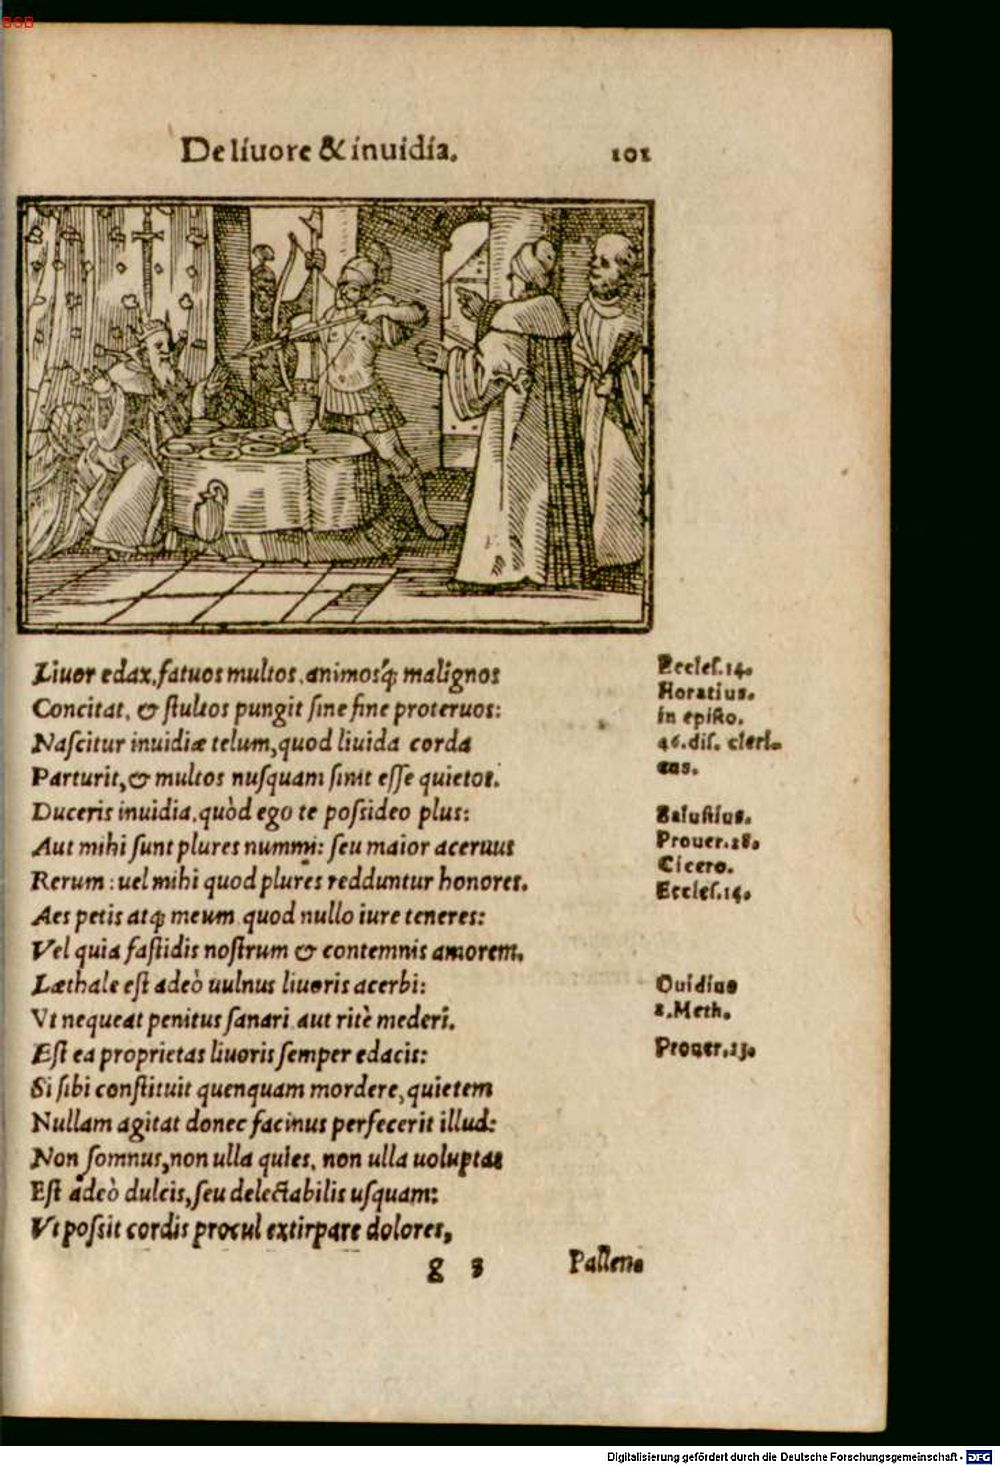 BSB
De liuore & inuidia. 101
Liuor edax, fatuos multos, animosq́; malignos
Concitat, & stultos pungit sine fine proteruos:
Nascitur inuidiæ telum, quod liuida corda
Parturit, & multos nusquam sinit esse quietos.
Duceris inuidia, quòd ego te possideo plus:
Aut mihi sunt plures nummi: seu maior aceruus
Rerum: uel mihi quod plures redduntur honores.
Aes petis atq́; meum quod nullo iure teneres:
Vel quia fastidis nostrum & contemnis amorem.
Læthale est adeò uulnus liuoris acerbi:
Vt nequeat penitus sanari aut ritè mederi.
Est ea proprietas liuoris semper edacis:
Si sibi constituit quenquam mordere, quietem
Nullam agitat donec facinus perfecerit illud:
Non somnus, non ulla quies, non ulla uoluptas
Est adeò dulcis, seu delectabilis usquam:
Vt possit cordis procul extirpare dolores,
g 3 Pallens
Eccles. 14.
Horatius.
in episto.
46. dis. cleri-
cus.
Salustius.
Prouer. 28.
Cicero.
Eccles. 14.
Ouidius
2. Meth.
Prouer. 23.
Digitalisierung gefördert durch die Deutsche Forschungsgemeinschaft - DFG